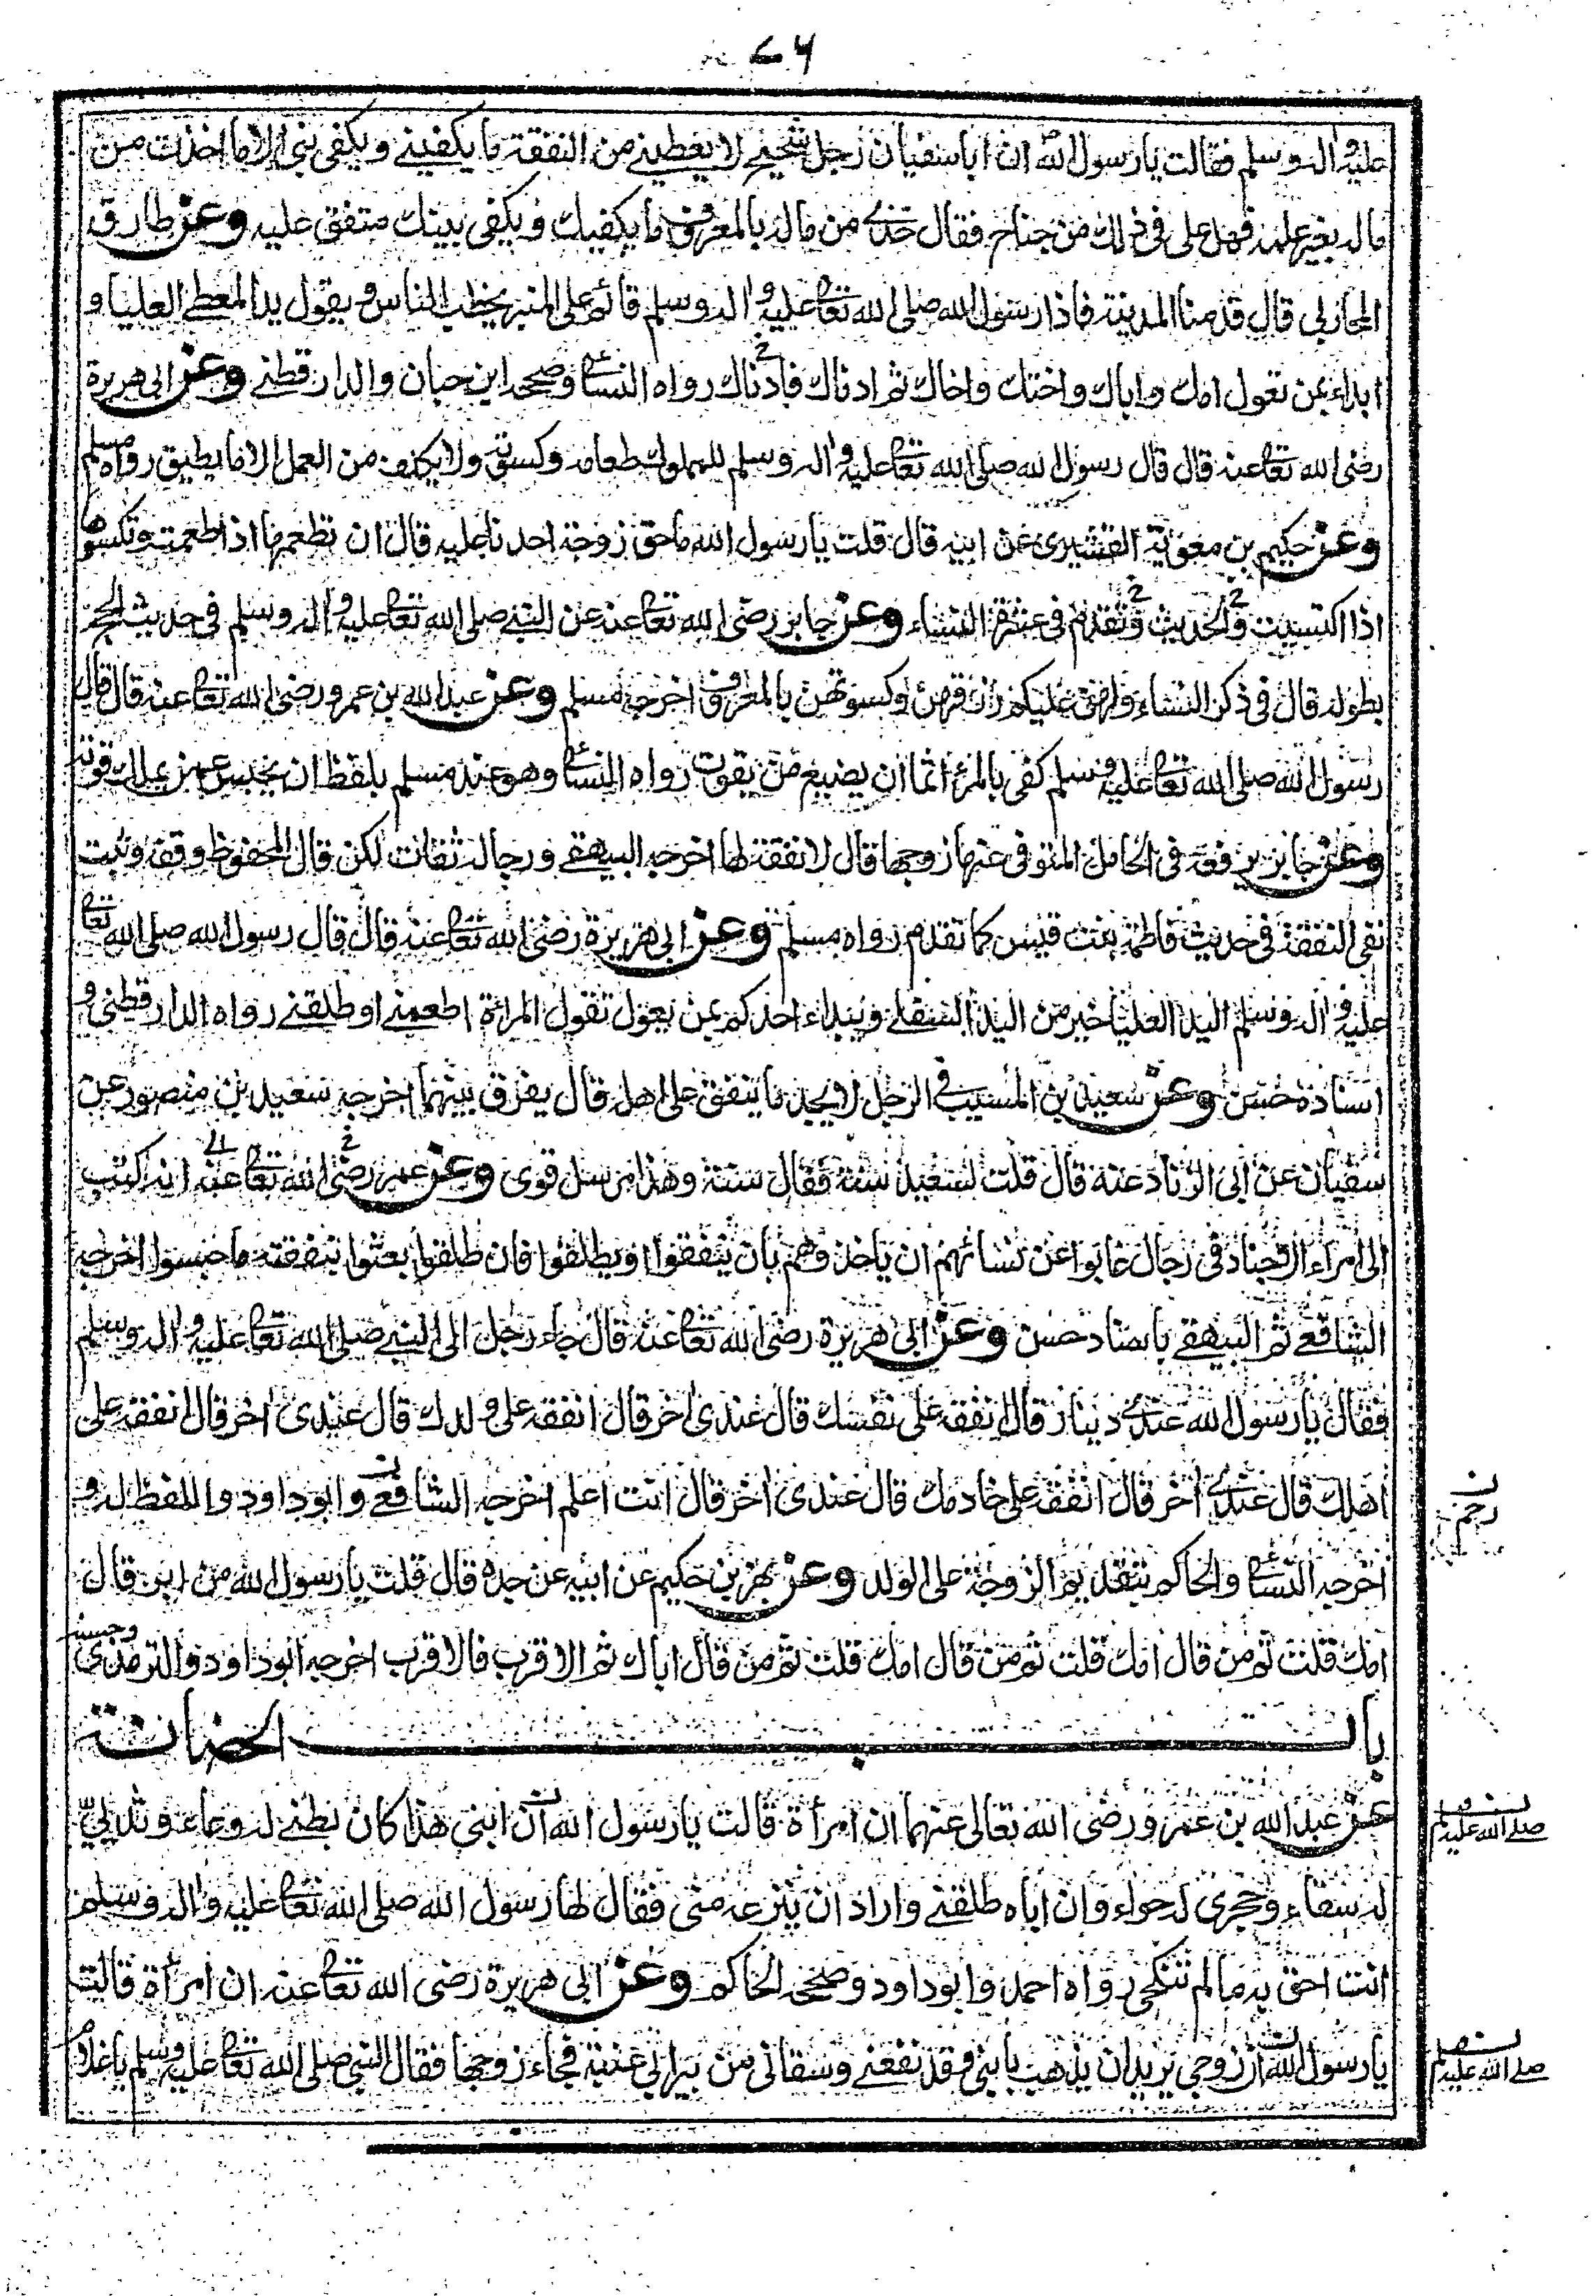 ٧٦
عليه واله وسلم فقالت يا رسول الله ان ابا سفيان رجل شحيح لا يعطيني من النفقة ما يكفيني ويكفي بني الا ما اخذت من
ماله بغير علمه فهل على في ذلك من جناح فقال خذي من ماله بالمعروف ما يكفيك ويكفي بنيك متفق عليه وعن طارق
المحاربي قال قدمنا المدينة فاذا رسول الله صلى الله تعالى عليه واله وسلم قائم على المنبر يخطب الناس ويقول يد المعطي العليا و
ابداء بمن تعول امك واباك واختك واخاك ثم ادناك فادناك رواه النسائي وصححه ابن حبان والدارقطني وعن ابي هريرة
رضى الله تعالى عنه قال قال رسول الله صلى الله تعالى عليه واله وسلم للمملوك طعامه وكسوته ولا يكلف من العمل الا ما يطيق رواه مسلم
وعن حكيم بن معوية القشيري عن ابيه قال قلت يا رسول الله ما حق زوجة احدنا عليه قال ان تطعمها اذا طعمت وتكسوها
اذا اكتسيت والحديث وتقدم في عشرة النساء وعن جابر رضى الله تعالى عنه عن النبي صلى الله تعالى عليه واله وسلم في حديث الحج
بطوله قال في ذكر النساء ولهن عليكم رزقهن وكسوتهن بالمعروف اخرجه مسلم وعن عبد الله بن عمرو رضى الله تعالى عنه قال قال
رسول الله صلى الله تعالى عليه وسلم كفى بالمرء اثما ان يضيع من يقوت رواه النسائي وهو عند مسلم بلفظ ان يحبس عمن يملك قوته
وعن جابر يرفعه في الحامل المتوفى عنها زوجها قال لا نفقة لها اخرجه البيهقي ورجاله ثقات لكن قال المحفوظ وقفه وثبت
نفي النفقة في حديث فاطمة بنت قيس كما تقدم رواه مسلم وعن ابي هريرة رضى الله تعالى عنه قال قال رسول الله صلى الله تعالى
عليه واله وسلم اليد العليا خير من اليد السفلى ويبداء احدكم بمن يعول تقول المراة اطعمني او طلقني رواه الدارقطني و
اسناده حسن وعن سعيد بن المسيب في الرجل لا يجد ما ينفق على اهله قال يفرق بينهما اخرجه سعيد بن منصور عن
سفيان عن ابي الزناد عنه قال قلت لسعيد سنة فقال سنة وهذا مرسل قوي وعن عمر رضى الله تعالى عنه انه كتب
الى امراء الاجناد في رجال غابوا عن نسائهم ان ياخذوهم بان ينفقوا او يطلقوا فان طلقوا بعثوا بنفقة ما حبسوا اخرجه
الشافعي ثم البيهقي باسناد حسن وعن ابي هريرة رضى الله تعالى عنه قال جاء رجل الى النبي صلى الله تعالى عليه واله وسلم
فقال يا رسول الله عندي دينار قال انفقه على نفسك قال عندي اخر قال انفقه على ولدك قال عندي اخر قال انفقه على
اهلك قال عندي اخر قال انفقه على خادمك قال عندي اخر قال انت اعلم اخرجه الشافعي وابو داود واللفظ له و
اخرجه النسائي والحاكم بتقديم الزوجة على الولد وعن بهز بن حكيم عن ابيه عن جده قال قلت يا رسول الله من ابر قال
امك قلت ثم من قال امك قلت ثم من قال امك قلت ثم من قال اباك ثم الاقرب فالاقرب اخرجه ابو داود والترمذي وحسنه
باب الحضانة
عن عبد الله بن عمرو رضى الله تعالى عنهما ان امرأة قالت يا رسول الله ان ابني هذا كان بطني له وعاء وثديي
له سقاء وحجري له حواء وان اباه طلقني واراد ان ينزعه مني فقال لها رسول الله صلى الله تعالى عليه واله وسلم
انت احق به ما لم تنكحي رواه احمد وابو داود وصححه الحاكم وعن ابي هريرة رضى الله تعالى عنه ان امرأة قالت
يا رسول الله ان زوجي يريد ان يذهب بابني وقد نفعني وسقاني من بير ابي عنبة فجاء زوجها فقال النبي صلى الله تعالى عليه وسلم يا غلام
صلى الله عليه وسلم
صلى الله عليه وسلم